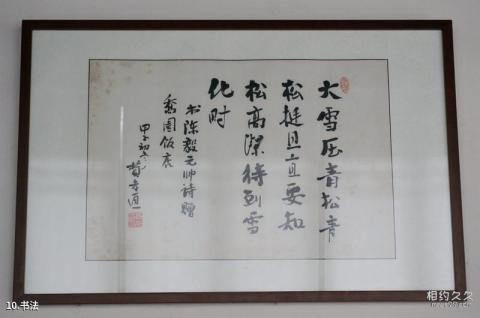 大雪压青松青
松挺且直要知
松高潔待到雪
化时
书陈毅元帅诗赠
黎园饭店
甲子初冬
相约久久
10.书法